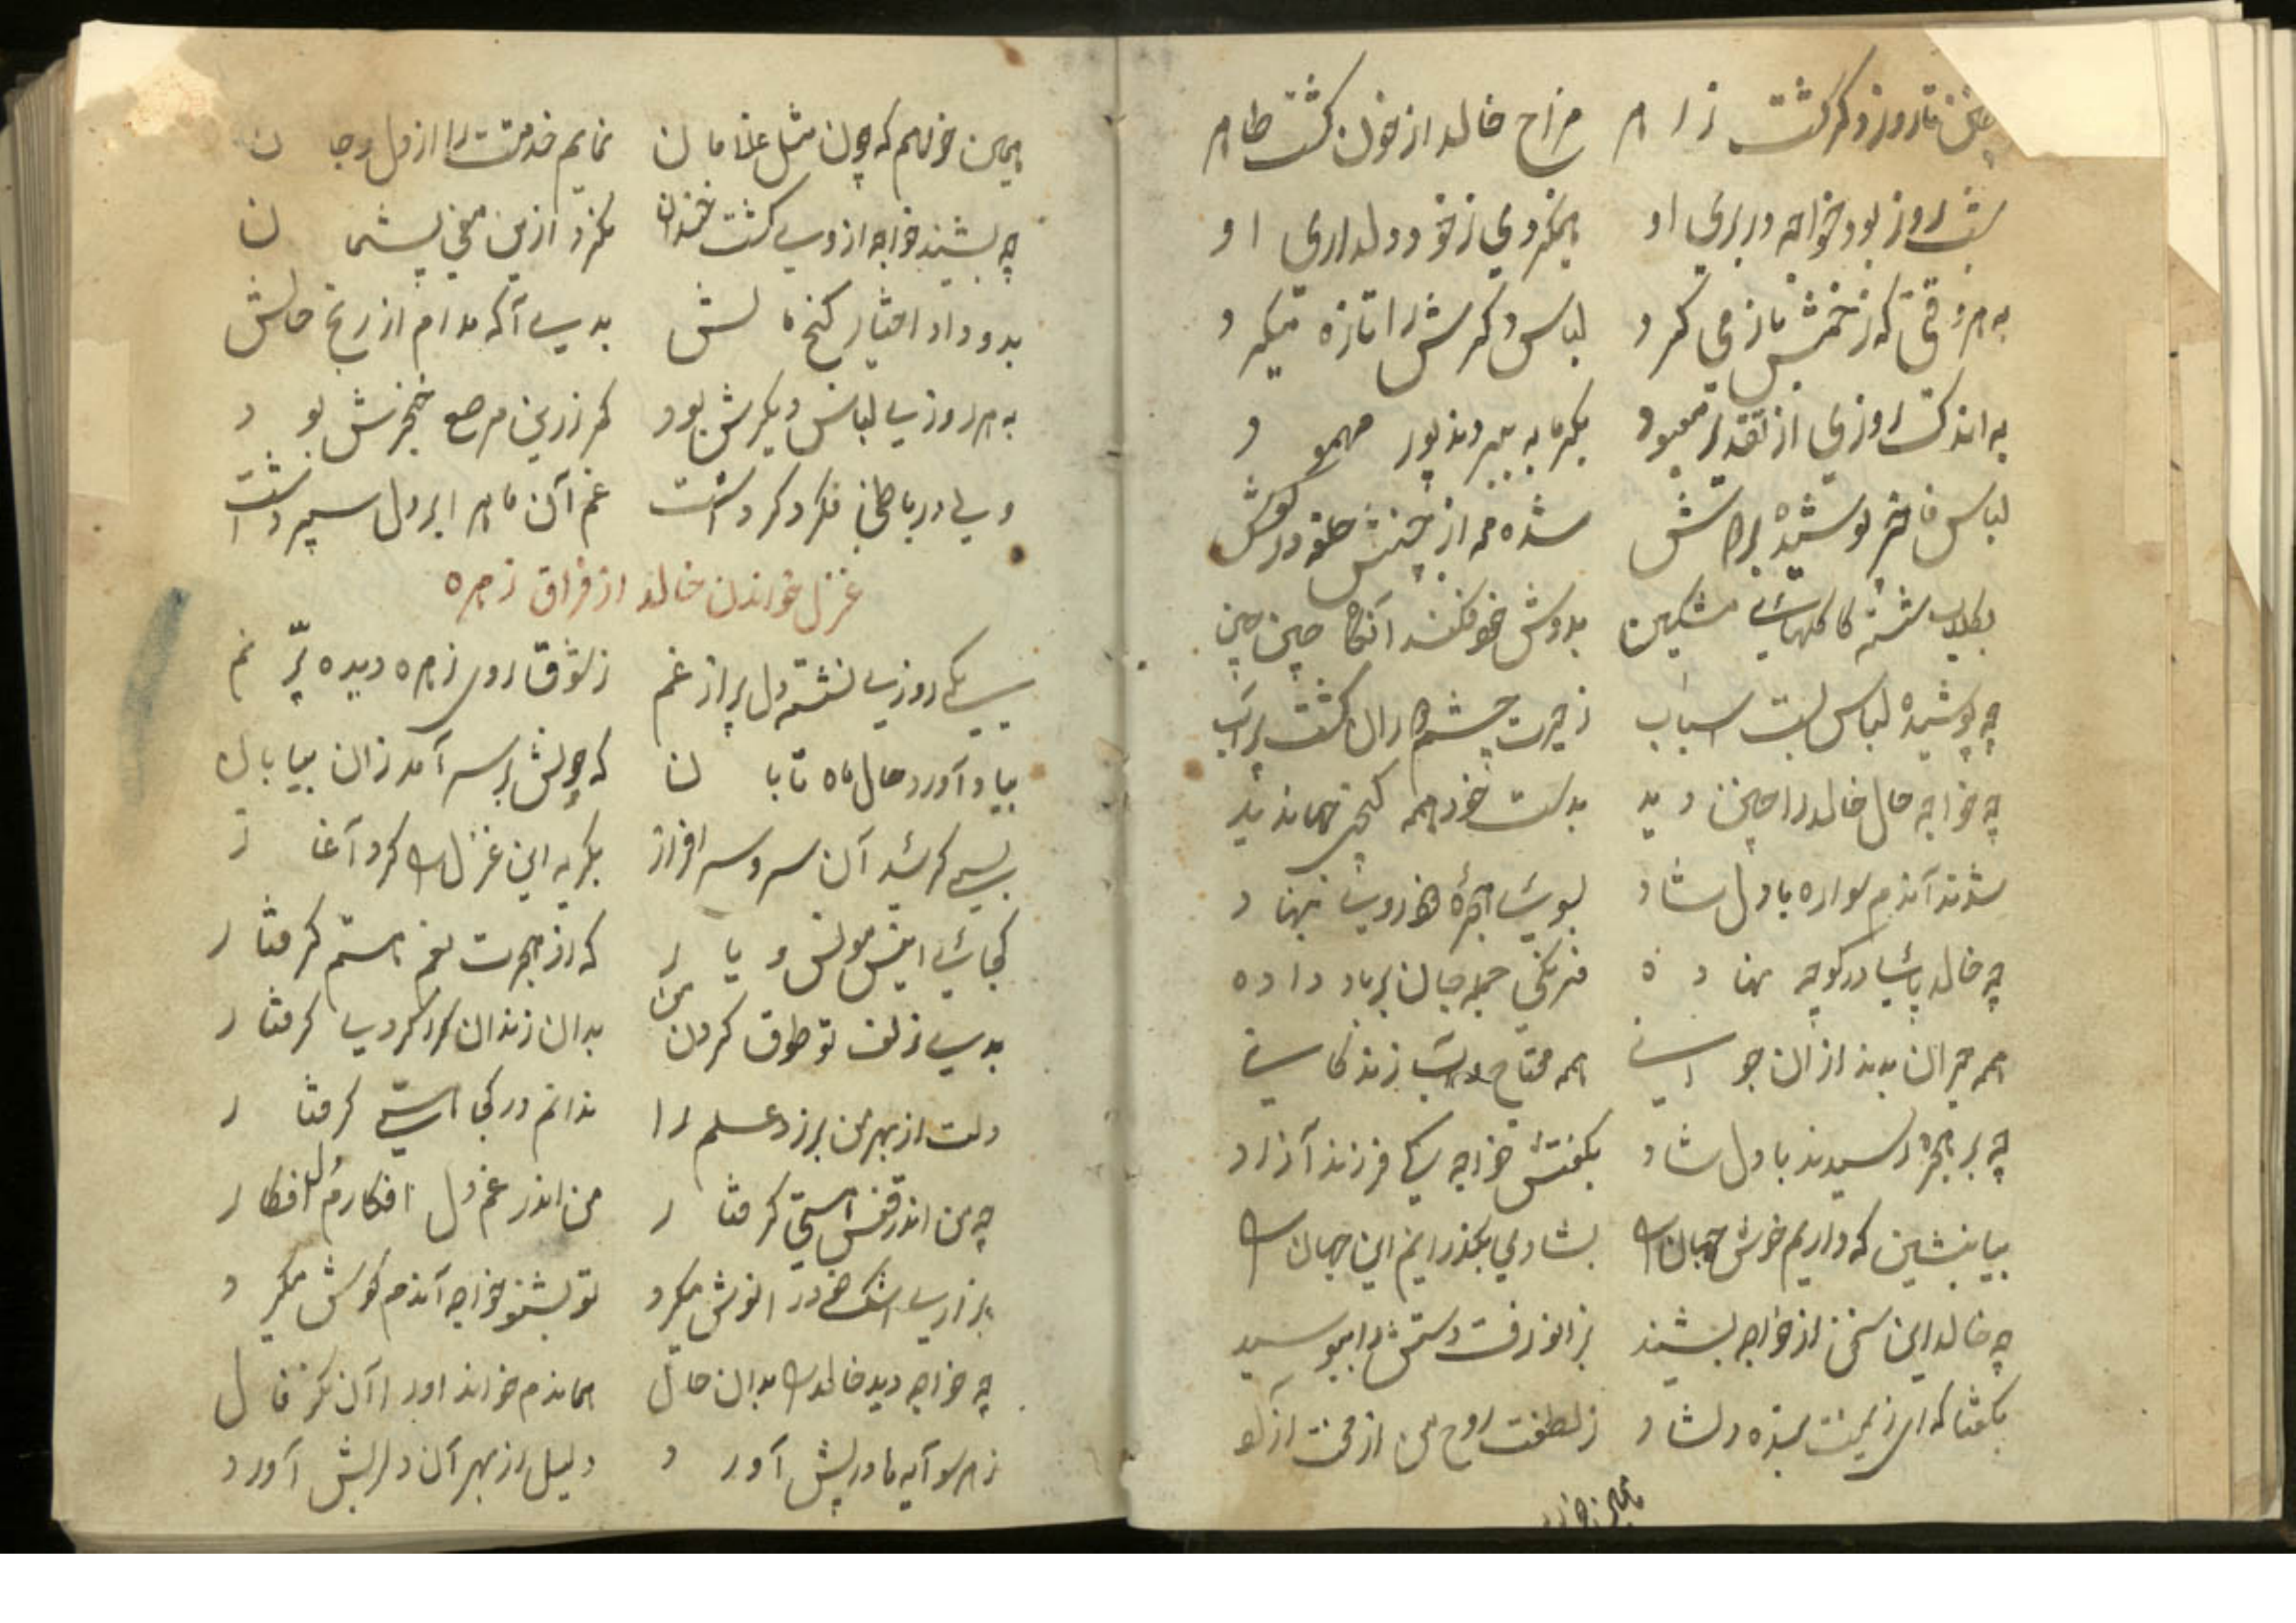 چنین تا روز دکر کشت زاهر مزاج خالد از خون کشت طاهر
شب روز بود خواجه در بری او همیکردی ز خود دلداری او
به هر وقتی که زخمش باز می کرد لباس دکرش را تازه میکرد
به اندک روزی از تقدیر معبود بکرمابه ببردند پور محمود
لباس فاخر پوشیده براهش شده مه از چنش حلقه در کوش
بکلاب شسته کاکلهای مشکین بدوش خود فکند آنکاه چین چین
چه پوشیده لباس اسباب ز حیرت چشم را کشت پر آب
چه خواجه حال خالد را چنین دید بدست خود همه
شدند آندم سواره با دل شاد بسوی حجره نهاد
چه خالد پای در کوچه نهاده جمله جان بر باد داده
همه حیران بدند از آن جوانی همه محتاج زندکانی
چه بر حجره رسیدند با دل شاد بکفتش خواجه یکی فرزند آزاد
بیا بنشین که داریم خوش جهان را بشادی بکذرانیم این جهان را
چه خالد این سخن از خواجه بشنید بزانو رفت دستش را ببوسید
بکفتا که ای ز یمنت بنده دلشاد ز لطفت روح من از محنت آزاد
همین خواهم که چون مثل غلامان نمایم خدمتت را از دل و جان
چه بشنید خواجه از وی کشت خندان نکرد ازین سخن پشیمان
بدو داد اختیار کنج مالش بدی آکه مدام از رنج حالش
به هر روزی لباس دیکرش بود کمر زرین مرصع خنجرش بود
ولی در باطن فکر دکر داشت غم آن ماه را بر دل سپر داشت
غزل خواندن خالد از فراق زهره
یکی روزی نشسته دل پر از غم ز شوق روی زهره دیده پر نم
بیاد آورد حال ماه تابان که چونش بر سر آمد زان بیابان
بسی کرید آن سرو سرافراز بکریه این غزل را کرد آغاز
کجائی انیس مونس و یار که از هجرت بغم هستم کرفتار
بدی زلف تو طوق کردن من بدان زندان کرا کردی کرفتار
دلت از بهر من برزد علم را ندانم در کجا هستی کرفتار
چه من اندر قفس هستی کرفتار من اندر غم دل افکارم دل افکار
بزاری اشک خود را نوش میکرد تو بشنو خواجه آندم کوش میکرد
چه خواجه دید خالد را بدان حال هماندم خواند او را آن نکو فال
ز هر سو آیه ها در پیش آورد دلیل از بهر آن دلریش آورد